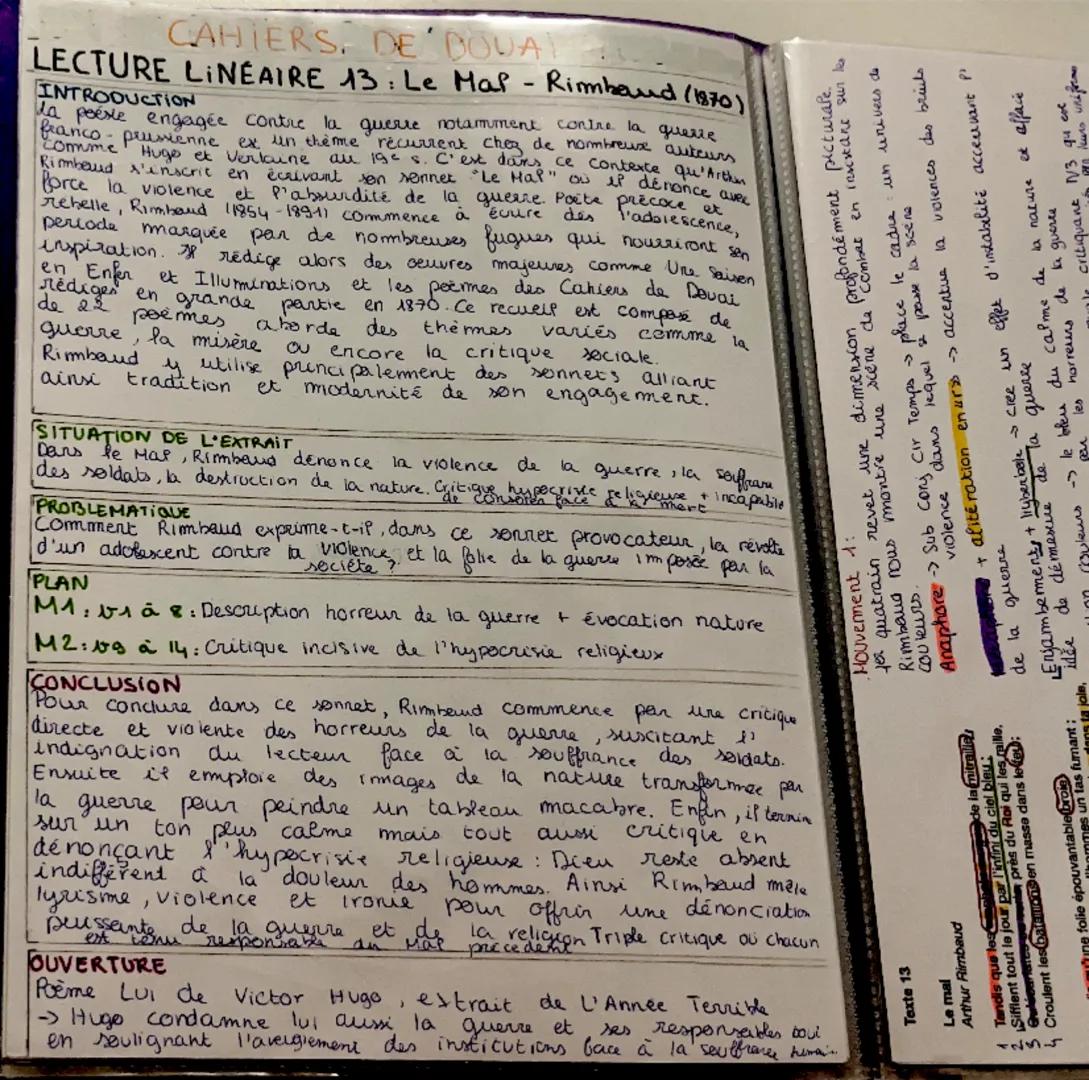 CAHIERS DE DOUAI
LECTURE LINÉAIRE 13 : Le Mal - Rimbaud (1870)
INTRODUCTION
La poésie engagée contre la guerre notamment contre la guerre
franco-prusienne est un thème récurrent chez de nombreux auteurs
comme Hugo et Verlaine au 19e s. C'est dans ce contexte qu'Arthur
Rimbaud s'inscrit en écrivant son sonnet "Le Mal" où il dénonce avec
force la violence et l'absurdité de la guerre. Poète précoce et
rebelle, Rimbaud (1854-1891) commence à écrire dès l'adolescence,
période marquée par de nombreuses fugues qui nourriront son
inspiration. Il rédige alors des oeuvres majeures comme Une Saison
en Enfer et Illuminations et les poèmes des Cahiers de Douai
rédigés en grande partie en 1870. Ce recueil est composé de
de 22 poèmes aborde des thèmes variés comme la
guerre, la misère ou encore la critique sociale.
Rimbaud y utilise principalement des sonnets alliant
ainsi tradition et modernité de son engagement.
SITUATION DE L'EXTRAIT
Dans le Mal, Rimbaud dénonce la violence de la guerre, la souffrance
des soldats, la destruction de la nature. Critique hypocrisie religieuse + incapable
de consoler face à la mort
PROBLÉMATIQUE
Comment Rimbaud exprime-t-il, dans ce sonnet provocateur, la révolte
d'un adolescent contre la violence et la folie de la guerre imposée par la
société ?
PLAN
M1 : v1 à 8 : Description horreur de la guerre + évocation nature
M2 : v9 à 14 : Critique incisive de l'hypocrisie religieux
CONCLUSION
Pour conclure dans ce sonnet, Rimbaud commence par une critique
directe et violente des horreurs de la guerre, suscitant l'
indignation du lecteur face à la souffrance des soldats.
Ensuite il emploie des images de la nature transformée par
la guerre pour peindre un tableau macabre. Enfin, il termine
sur un ton plus calme mais tout aussi critique en
dénonçant l'hypocrisie religieuse : Dieu reste absent
indifférent à la douleur des hommes. Ainsi Rimbaud mêle
lyrisme, violence et ironie pour offrir une dénonciation
puissante de la guerre et de la religion Triple critique où chacun
est tenu responsable du Mal précédent
OUVERTURE
Poème Lui de Victor Hugo, extrait de L'Année Terrible
-> Hugo condamne lui aussi la guerre et ses responsables tout
en soulignant l'aveuglement des institutions face à la souffrance humain
MOUVEMENT 1 :
1er quatrain revet une dimension profondément picturale.
Rimbaud nous montre une scène de combat en insistant sur les
couleurs.
Anaphore -> Sub conj Cir Temps -> place le cadre : un univers de
violence dans lequel se passe la scène
+ alitération en r s -> accentue la violences des bruits
de la guerre
Enjambements + hyperbole -> cree un effet d'instabilité accenuant l'
idée de démesure de la guerre
couleurs -> le bleu du calme de la nature et effacé
par les horreurs de la guerre
Texte 13
Le mal
Arthur Rimbaud
1 Tandis que les de la mitraille
2 Sifflent tout le jour par l'infini du ciel bleu ;
3 près du Roi qui les raille,
4 Croulent les bataillons en masse dans le feu ;
qu'une folie épouvantable broie
d'hommes un tas fumant ;